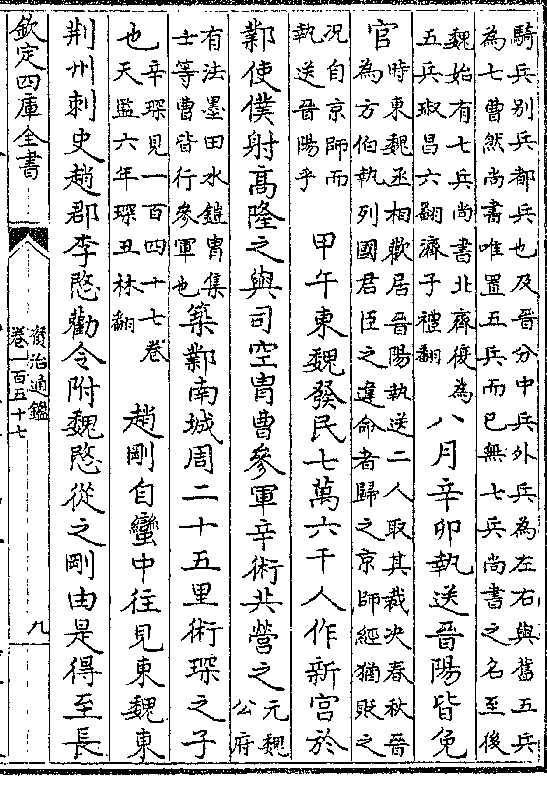 騎兵別兵都兵也及晉分中兵外兵為左右與舊五兵
為七曹然尚書唯置五兵而已無七兵尚書之名至後
魏始有七兵尚書北齊復為
五兵琡昌六翻濟子禮翻
八月辛卯執送晉陽皆免
官
時東魏丞相歡居晉陽執送二人取其裁决春秋晉
為方伯執列國君臣之違命者歸之京師經猶貶之
况自京師而
執送晉陽乎
甲午東魏發民七萬六千人作新宮於
鄴使僕射髙隆之與司空胄曹參軍辛術共營之
元魏
公府
有法墨田水鎧胄集
士等曹皆行參軍也
築鄴南城周二十五里術琛之子
也
辛琛見一百四十七卷
天監六年琛丑林翻
趙剛自蠻中往見東魏東
荆州刺史趙郡李愍勸令附魏愍從之剛由是得至長
欽定四庫全書
資治通鑑
卷一百五十七
九